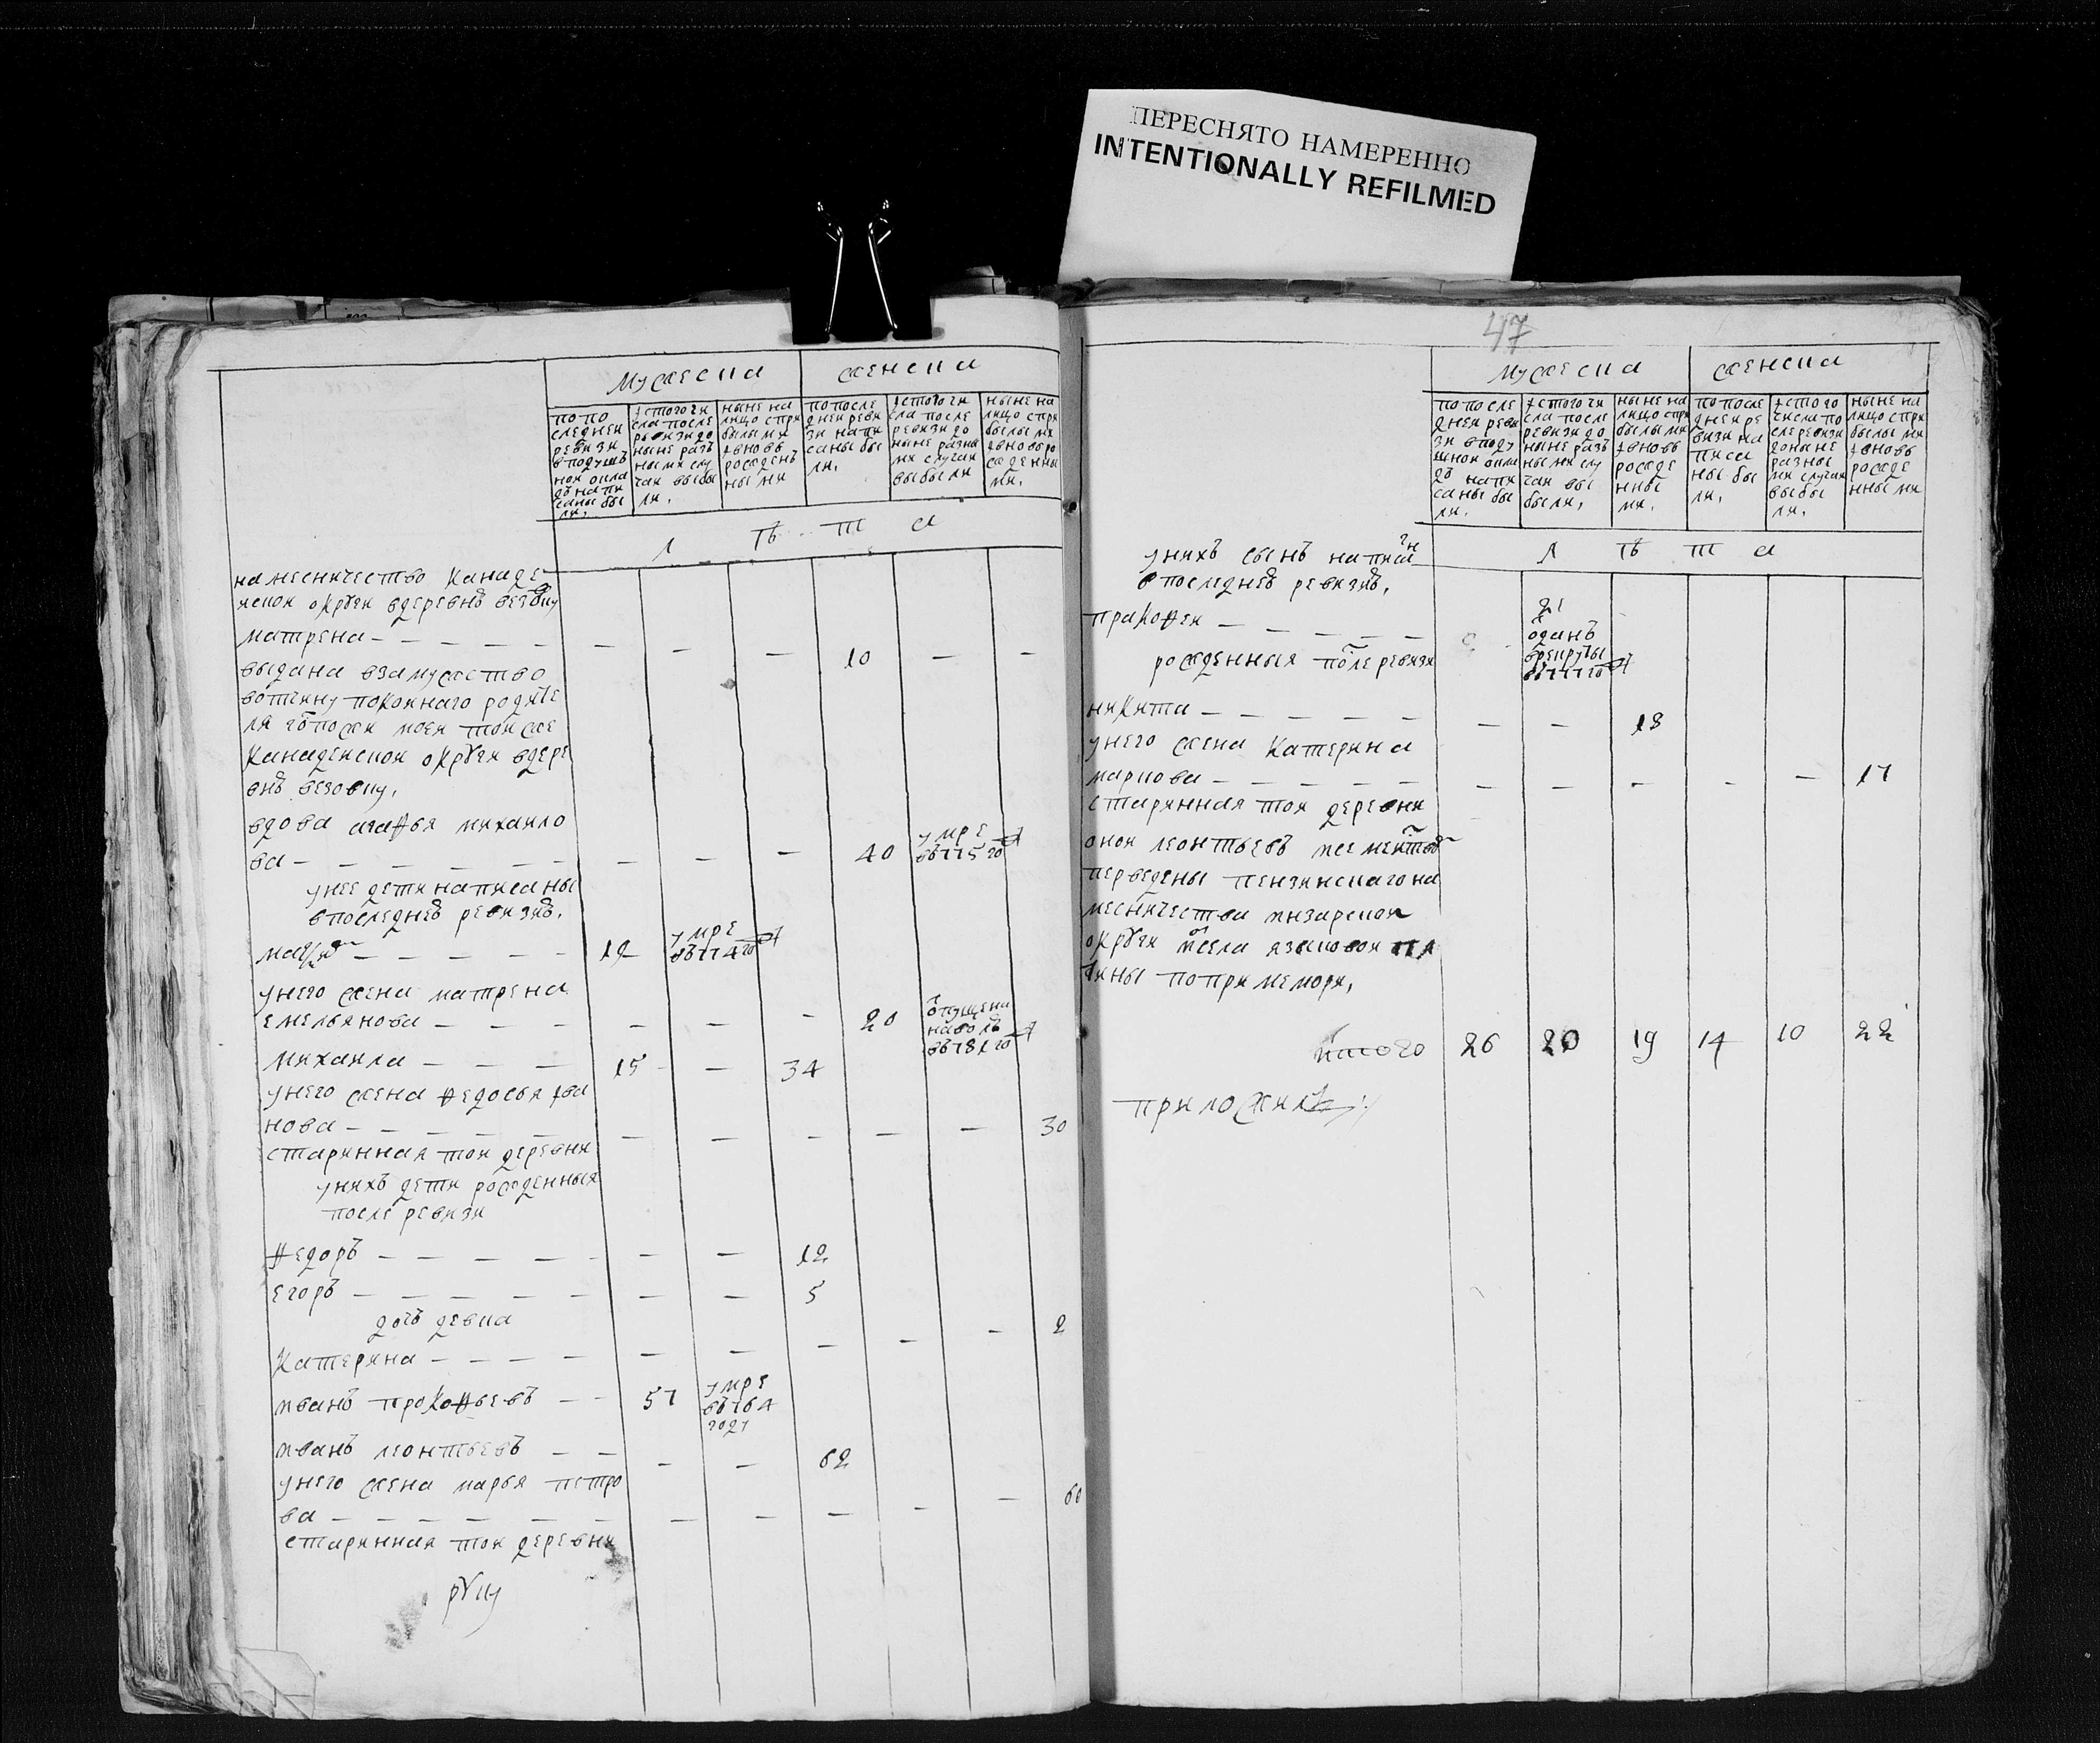 ПЕРЕСНЯТО НАМЕРЕННО
INTENTIONALLY REFILMED
мужеска женска
по по
следней
ревизи
в подушъ
ной окла
дъ напи
саны бы
ли,
ис того чи
сла после
ревизи до
ныне разъ
ными слу
чаи выбы
ли.
ныне на
лицо с при
былыми
и вновь
рожденъ
ными
по после
дней реви
зи напи
саны бы
ли.
ис того чи
сла после
ревизи до
ныне разны
ми случаи
выбыли
ныне на
лицо с при
былыми
и вновь ро
жденны
ми.
л ѣ т а
наместничество канаде
йской округи в деревнѣ вязовку
матрена — — — — — — — — 10 — —
выдана в замужство
вотчину покойнаго родите
ля гдпожи моей той же
канадейской округи в дере
внѣ вязовку,
вдова агафья михаило
ва — — — — — — — — — 40 умре в 775 го
у нее дети написаны
в последней ревизиѣ,
— — — — — 12 умре в 774 го
у него жена матрена
емельянова — — — — — — 20 отпущена на волѣ в 781 го
михаила — — — 15 — 34
у него жена федосья ива
нова — — — — — — — — — — 30
старинная той деревни
у нихъ дети рожденныя
после ревизи
федоръ — — — — — — — 12
егоръ — — — — — — — 5
дочь девка
катерина — — — — — — — — — 2
иванъ прокофьевъ — — 57 умре в 1764 году
иванъ леонтьевъ — — — — 62
у него жена марья петро
ва — — — — — — — — — — — 60
старинная той деревни
руку
47
мужеска женска
по после
дней реви
зи в поду
шной окла
дъ напи
саны бы
ли.
ис того чи
сла после
ревизи до
ныне разъ
ными слу
чаи вы
были,
ныне на
лицо с при
былыми
и вновь
рожде
нны
ми.
по после
дней ре
визи на
писа
ны бы
ли,
ис того
числа по
сле ревизи
доныне
разны
ми случаи
выбы
ли,
ныне на
лицо с при
былыми
и вновь
рожде
нными
л ѣ т а
у нихъ сынъ написа
в последней ревизиѣ,
пракофеи — — — — —
отданъ
в рекруты
в 777 го
рожденныя после ревизи
никита — — — — — — — 18
у него жена катерина
маркова — — — — — — — — — — 17
старинная той деревни
оной леонтьевъ
переведены пензинскаго на
месничества инзарской
округи ис села языковой пя
тины по примемори,
итого 26 20 19 14 10 22
приложилъ